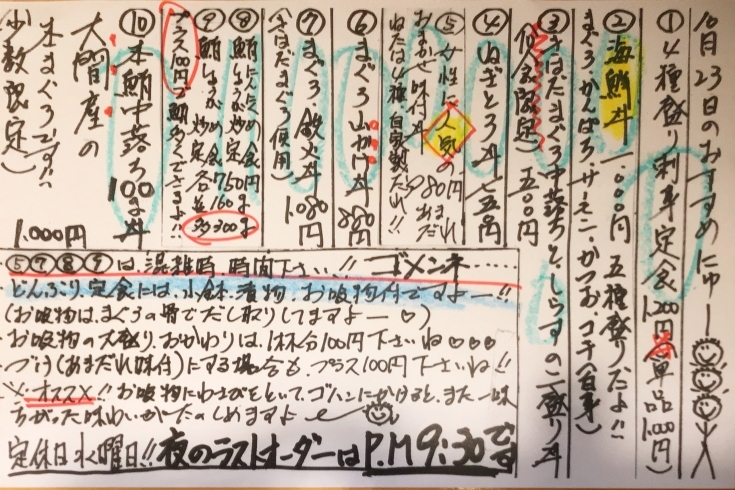 10月23日のおすすめにゅー
① 4種盛り刺身定食 1200円 単品1,000円)
② 海鮮丼 1,000円 五種盛りだよ!!
まぐろ、かんぱち、サーモン、かつお、コチ(白身)
③ きはだまぐろ中落ちと、しらすの二盛り丼
(10食限定) 500円
④ ねぎとろ丼 七五〇円
⑤ 女性に人気の
おまかせ味付丼 980円
ねたは4種 自家製だれ!!
⑥ まぐろ山かけ丼 880円
⑦ まぐろ・鉄火丼 1,080円
(きはだまぐろ使用)
⑧ 鮪にんにく炒め定食 750円
⑨ 鮪しょうが炒め定食
プラス100円で
⑩ 本鮪中落ち100g丼
大間産の
本まぐろです!!
少数限定) 1,000円
⑤⑦⑧⑨は混雑時、時間下さい…!! ゴメンネ……
どんぶり、定食には、小鉢、漬物、お吸物付ですよー!!
(お吸物は、まぐろの骨でだし取りしてますよー♡)
お吸物の大盛り、おかわりは、1杯分100円下さいね♡♡♡
づけ(あまだれ味付)にする場合も、プラス100円下さいね!!
※オススメ!! お吸物にわさびをといて、ゴハンにかけると、また一味
ちがった味わいがたのしめますよ
定休日水曜日!! 夜のラストオーダーはP.M9:30です